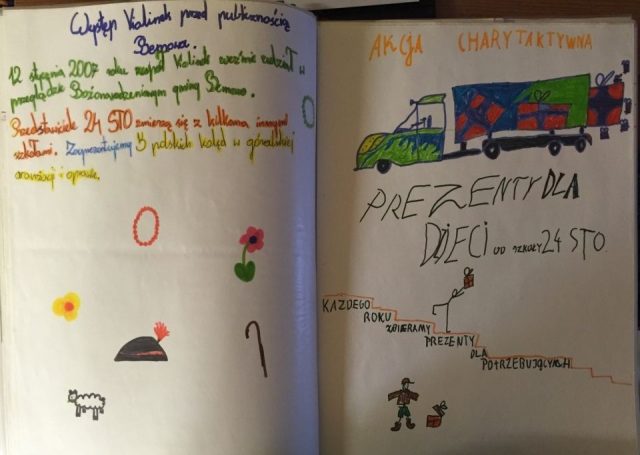 Występ Kalinek przed publicznością
Bemowa.
12 stycznia 2007 roku zespół Kalinek weźmie udział w
przeglądzie Bożonarodzeniowym gminy Bemowo.
Przedstawiciele 24 STO zmierzą się z kilkoma innymi
szkołami. Zaprezentujemy 3 polskie kolęd w góralskiej
aranżacji i oprawie.
AKCJA CHARYTAKTYWNA
PREZENTY DLA
DZIECI OD SZKOŁY 24 STO
KAŻDEGO
ROKU
ZBIERAMY
PREZENTY
DLA
POTRZEBUJĄCYCH